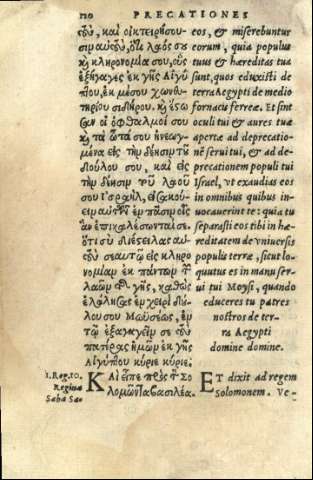 120 PRECATIONES
σὺν, καὶ οἰκτειρήσου-
σιμ αὐτῶν, ὅτι λαός σȣ
κ̀ κληρονομία σου, οὓς
ἐξήγαγες ἐκ γῆς Αἰγύ
πτου, ἐκ μέσου χωνευ-
τηρίου σιδήρου. κ̀ ἔστω
σαν οἱ ὀφθαλμοί σου
κ̀ τὰ ὦτά σου ἠνεῳγ-
μένα εἰς τὴν δέησιμ τȣ͂
δούλου σου, καὶ εἰς
τὴν δέησιμ τȣ͂ λαοῦ
σου ἰσραὴλ, εἰσακού-
ειμ αὐτῶν ἐμ πᾶσιμ οἷς
ἂν ἐπικαλέσωνταί σε.
ὅτι σὺ διέστειλας αὐ-
τοὺς σεαυτῷ εἰς κληρο
νομίαμ ἐκ πάντωμ τῶν
λαῶμ τῆς γῆς, καθὼς
ἐλάλησας ἐμ χειρὶ δού-
λου σου Μωυσέως, ἐμ
τῷ ἐξαγαγεῖμ σε τοὺς
πατέρας ἡμῶμ ἐκ γῆς
Αἰγύπτου κύριε κύριε.
eos, & miserebuntur
eorum, quia populus
tuus & hæreditas tua
sunt, quos eduxisti de
terra Aegypti de medio
fornacis ferreæ. Et sint
oculi tui & aures tuæ
apertæ ad deprecatio-
nē serui tui, & ad de-
precationem populi tui
Israel, vt exaudias eos
in omnibus quibus in-
uocauerint te: quia tu
separasti eos tibi in hæ-
reditatem de vniuersis
populis terræ, sicut lo-
quutus es in manu ser-
ui tui Moysi, quando
educeres tu patres
nostros de ter-
ra Aegypti
domine domine.
1. Reg. 10.
Regina
Saba Sa-
ΚΑὶ εἶπε πρὸς τ̀ Σο-
λομῶντα βασιλέα.
ET dixit ad regem
Solomonem. Ve-